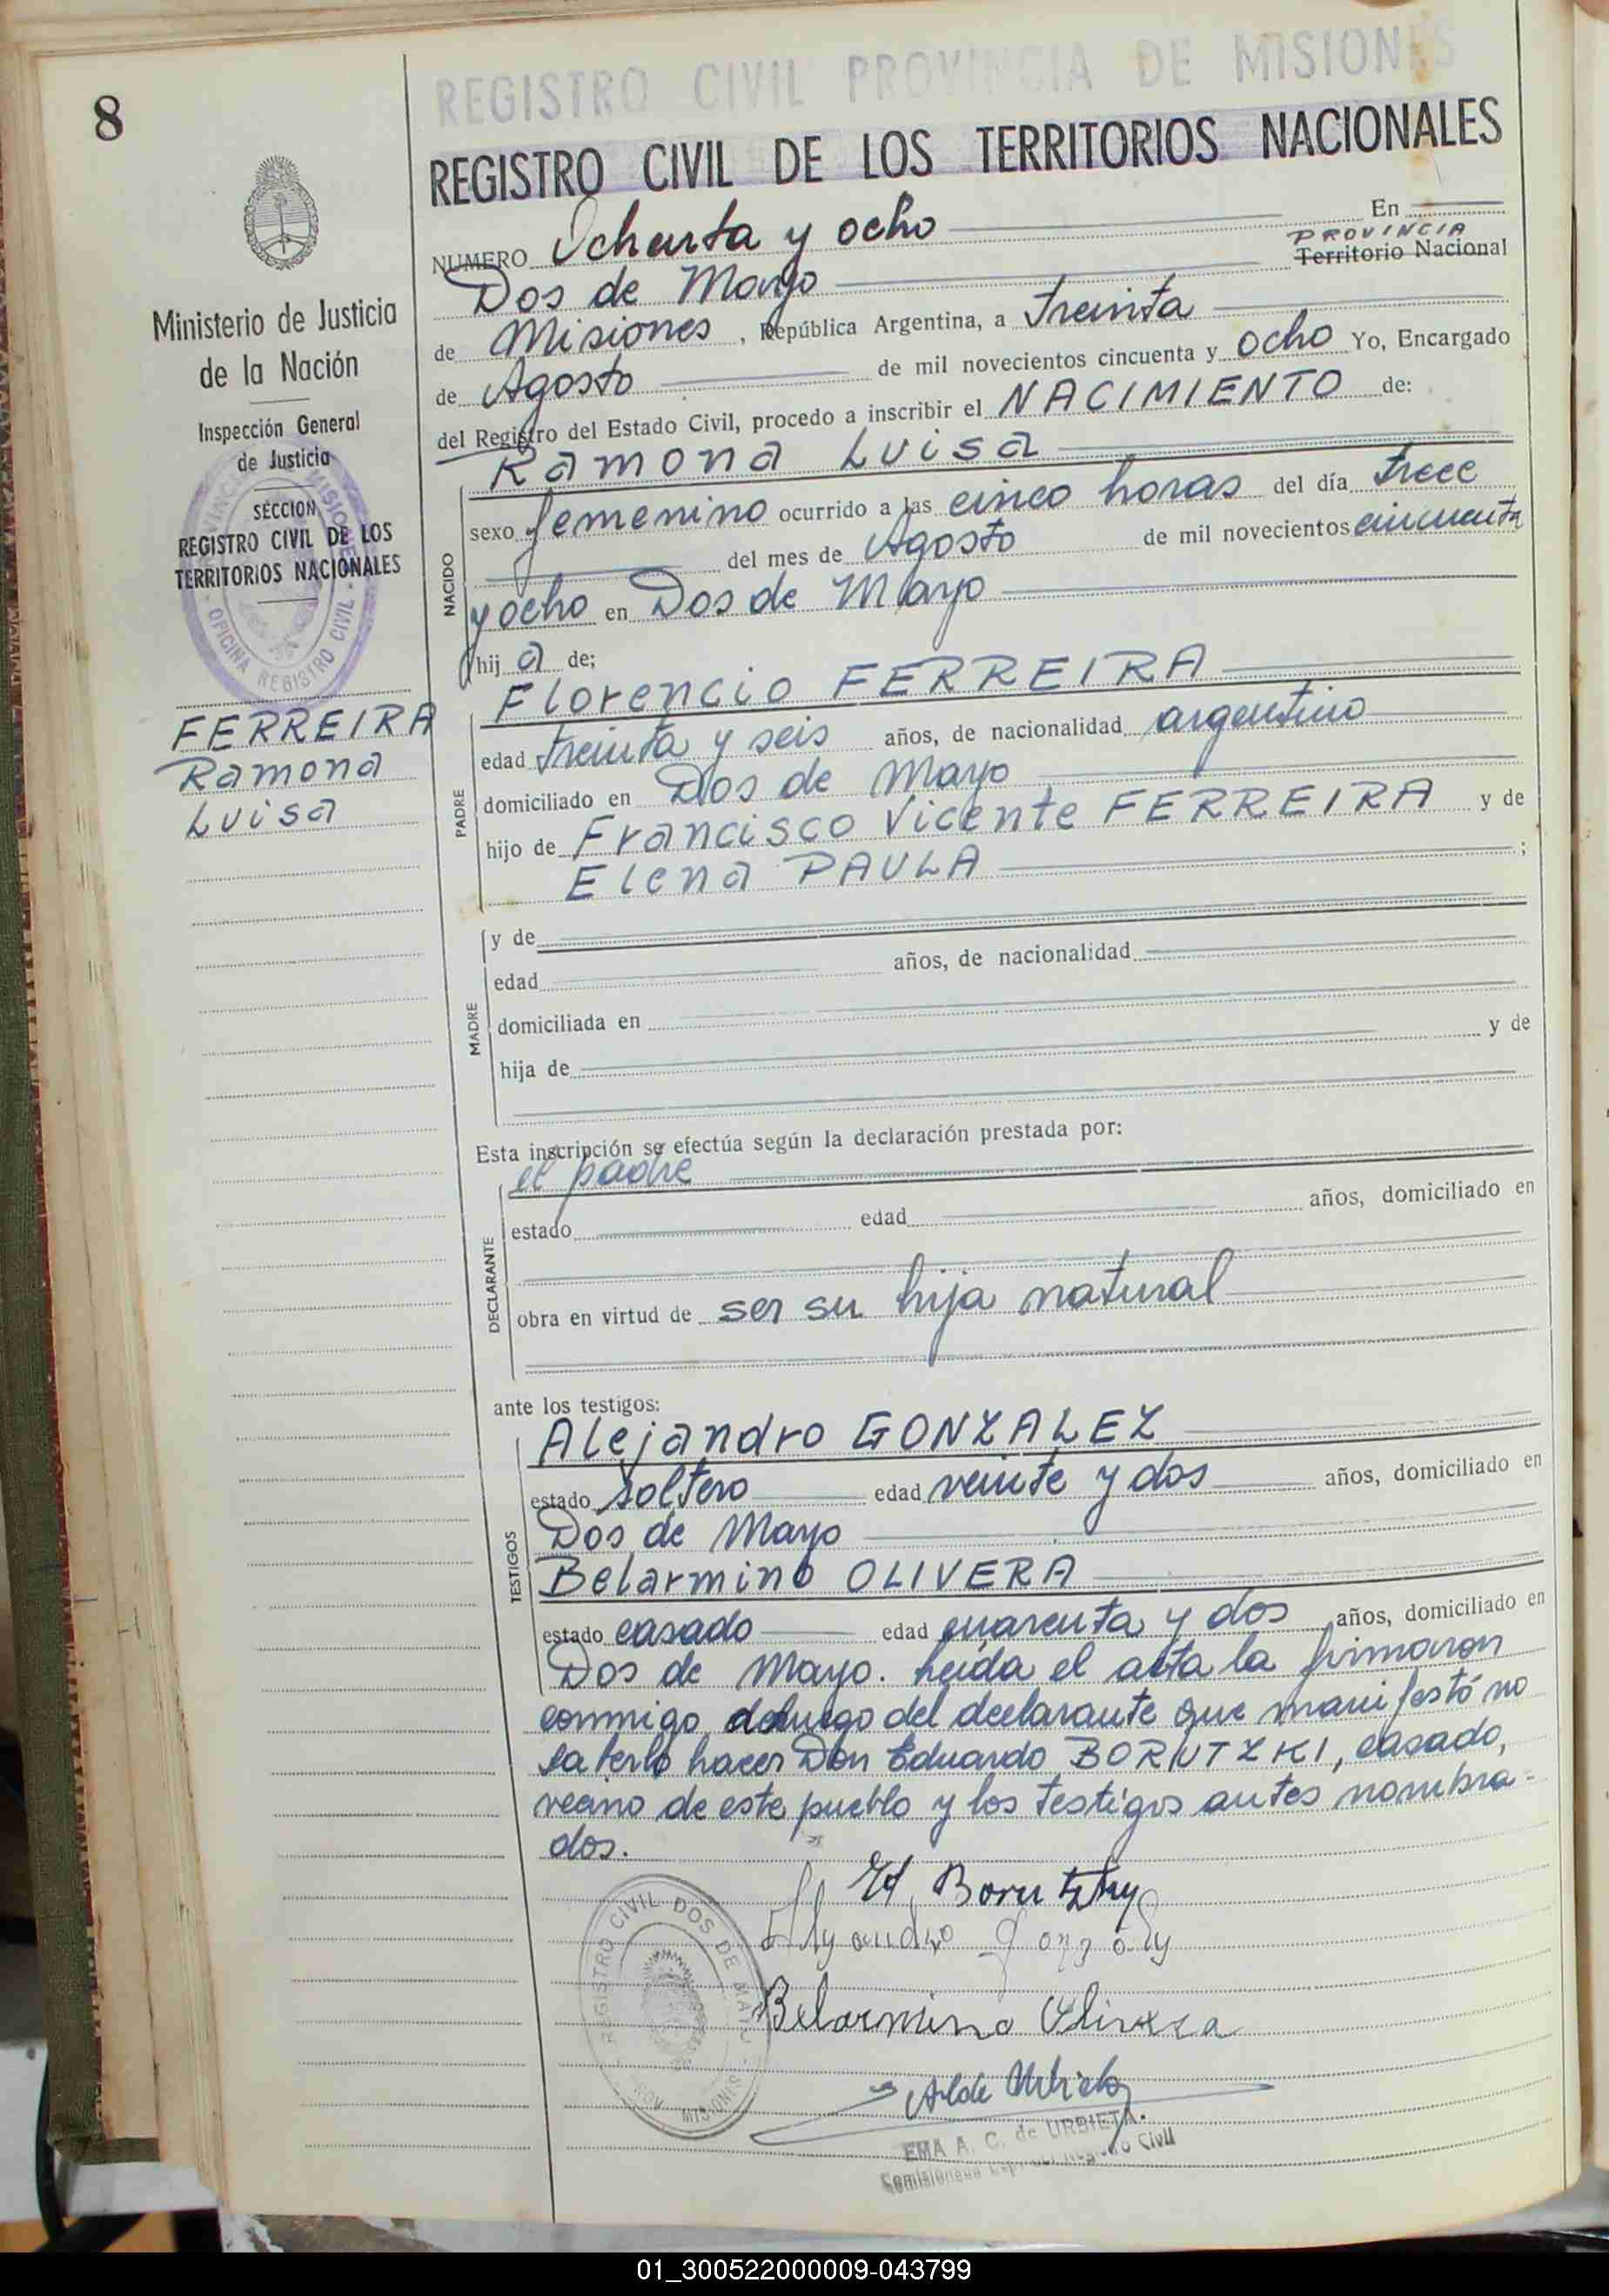 8
REGISTRO CIVIL PROVINCIA DE MISIONES
REGISTRO CIVIL DE LOS TERRITORIOS NACIONALES
Ministerio de Justicia
de la Nación
Inspección General
de Justicia
SECCION
REGISTRO CIVIL DE LOS
TERRITORIOS NACIONALES
PROVINCIA MISIONES
OFICINA REGISTRO CIVIL
FERREIRA
Ramona
Luisa
NUMERO Ochenta y ocho En
Dos de Mayo PROVINCIA Territorio Nacional
de Misiones, República Argentina, a treinta
de Agosto de mil novecientos cincuenta y ocho Yo, Encargado
del Registro del Estado Civil, procedo a inscribir el NACIMIENTO de:
NACIDO
Ramona Luisa
sexo femenino ocurrido a las cinco horas del día trece
del mes de Agosto de mil novecientos cincuenta
y ocho en Dos de Mayo
hij a de;
PADRE
Florencio FERREIRA
edad treinta y seis años, de nacionalidad argentino
domiciliado en Dos de Mayo
hijo de Francisco Vicente FERREIRA y de
Elena PAULA ;
MADRE
y de
edad años, de nacionalidad
domiciliada en
hija de y de
Esta inscripción se efectúa según la declaración prestada por:
DECLARANTE
el padre
estado edad años, domiciliado en
obra en virtud de ser su hija natural
ante los testigos:
TESTIGOS
Alejandro GONZALEZ
estado soltero edad veinte y dos años, domiciliado en
Dos de Mayo
Belarmino OLIVERA
estado casado edad cuarenta y dos años, domiciliado en
Dos de Mayo. Leida el acta la firmaron
conmigo, del declarante que manifestó no
saberlo hacer Don Eduardo BORUTZKI, casado,
vecino de este pueblo y los testigos antes nombra-
dos.
Ed. Borutzky
Alejandro Gonzalez
Belarmino Olivera
REGISTRO CIVIL DOS DE MAYO
PROV. MISIONES
EMA A. C. de URBIETA.
Registro Civil
01_300522000009-043799